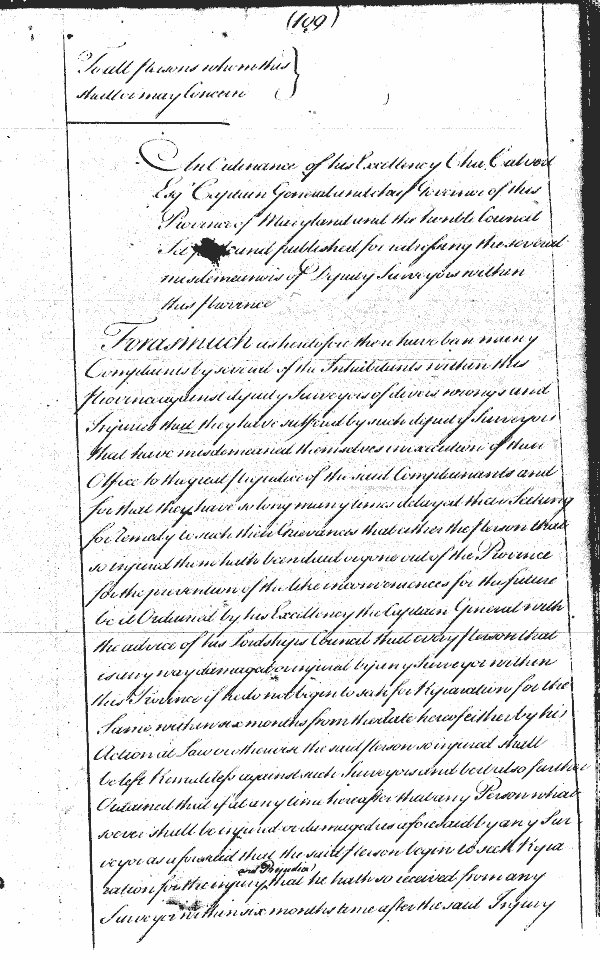 (109)
To all Persons whom this
shall or may Concern
An Ordinance of his Excellency Cha Calvert
Esqr Captain General and chief Governor of this
Province of Maryland and the honble Council
and published for redressing the several
misdemeanors of Deputy Surveyors within
this Province
Forasmuch as heretofore there have been many
Complaints by several of the Inhabitants within this
Province against deputy Surveyors of divers wrongs and
Injuries that they have suffered by such deputy Surveyors
that have misdemeaned themselves in execution of their
Office to the great prejudice of the said Complainants and
for that they have so long many times delayed their Seeking
for remedy to such their Grievances that either the Person that
so injured them hath been dead or gone out of the Province
for the prevention of the like inconveniences for the future
be it Ordained by his Excellency the Captain General with
the advice of his Lordships Council that every Person that
is any way damaged or injured by any Surveyor within
this Province if he do not begin to seek for Reparation for the
Same within six months from the date hereof either by his
Action at Law or otherwise the said Person so injured shall
be left Remediless against such Surveyors and be it also further
Ordained that if at any time hereafter that any Person what
soever shall be injured or damaged as aforesaid by any Sur
veyor as aforesaid that the said Person begin to seek Repa
ration for the injury and Prejudice that he hath so received from any
Surveyor within six months time after the said Injury